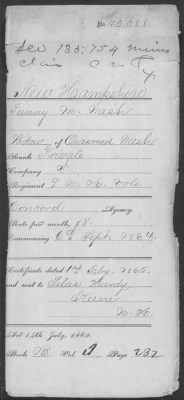 No. 48,088
See 135,754 minor
claim
New Hampshire
Fanny M. Nash
Widow of Nash
Rank Private
Company
Regiment N. H. Vols.
Concord Agency.
Rate per month, $8.
Commencing 6th Sept. 1864,
Certificate dated 1st Feby. 1865.
and sent to Silas Hardy,
Keene
N. H.
Act 14th July, 1862.
Book B Vol. Page 232